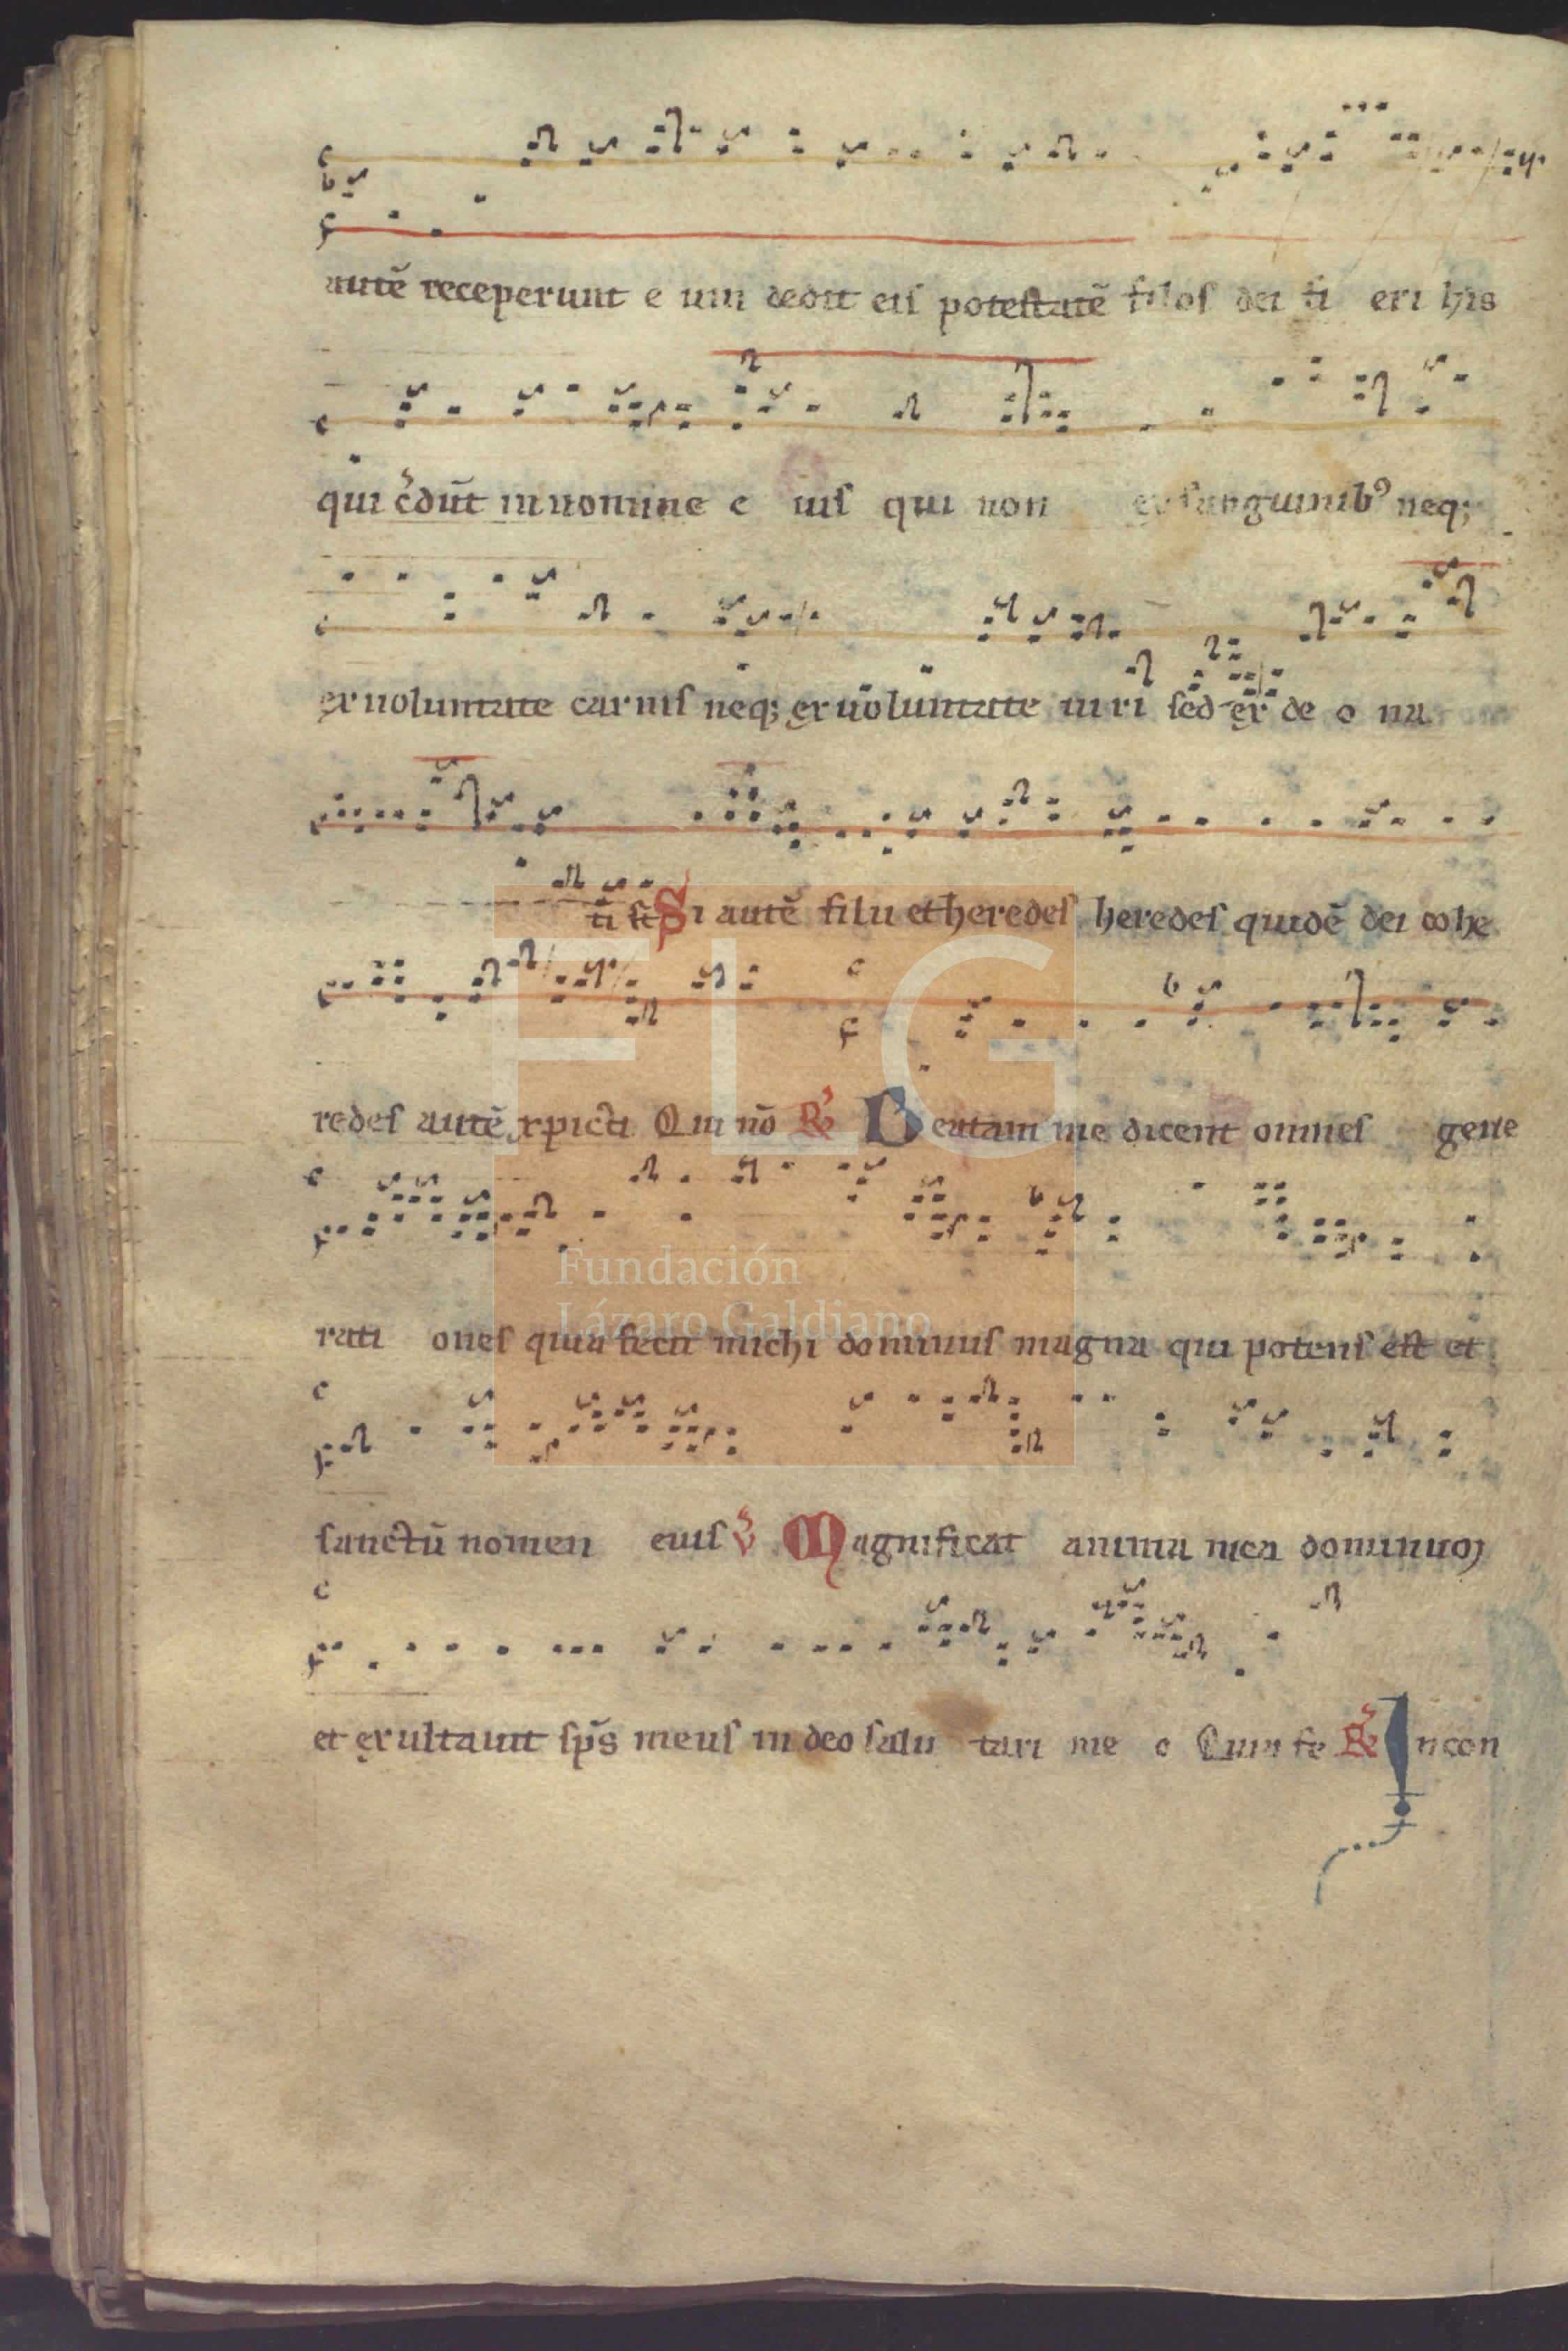 autē receperunt e um dedit eis potestatē filos dei fi eri his
qui c̄dūt in nomine e ius qui non ex sanguinibꝰ neq;
ex uoluntate carnis neq; ex uoluntate uiri sed ex de o na
ti st̄ Si autē filii et heredes heredes quidē dei cohe
redes autē xpicti Qui nō R̄ Beatam me dicent omnes gene
rati ones quia fecit michi dominus magna qui potens est et
sanctū nomen eius v̄ Magnificat anima mea dominum
et exultauit sp̄s meus in deo salu tari me o Quia fe R̄ In con
FLG
Fundación
Lázaro Galdiano